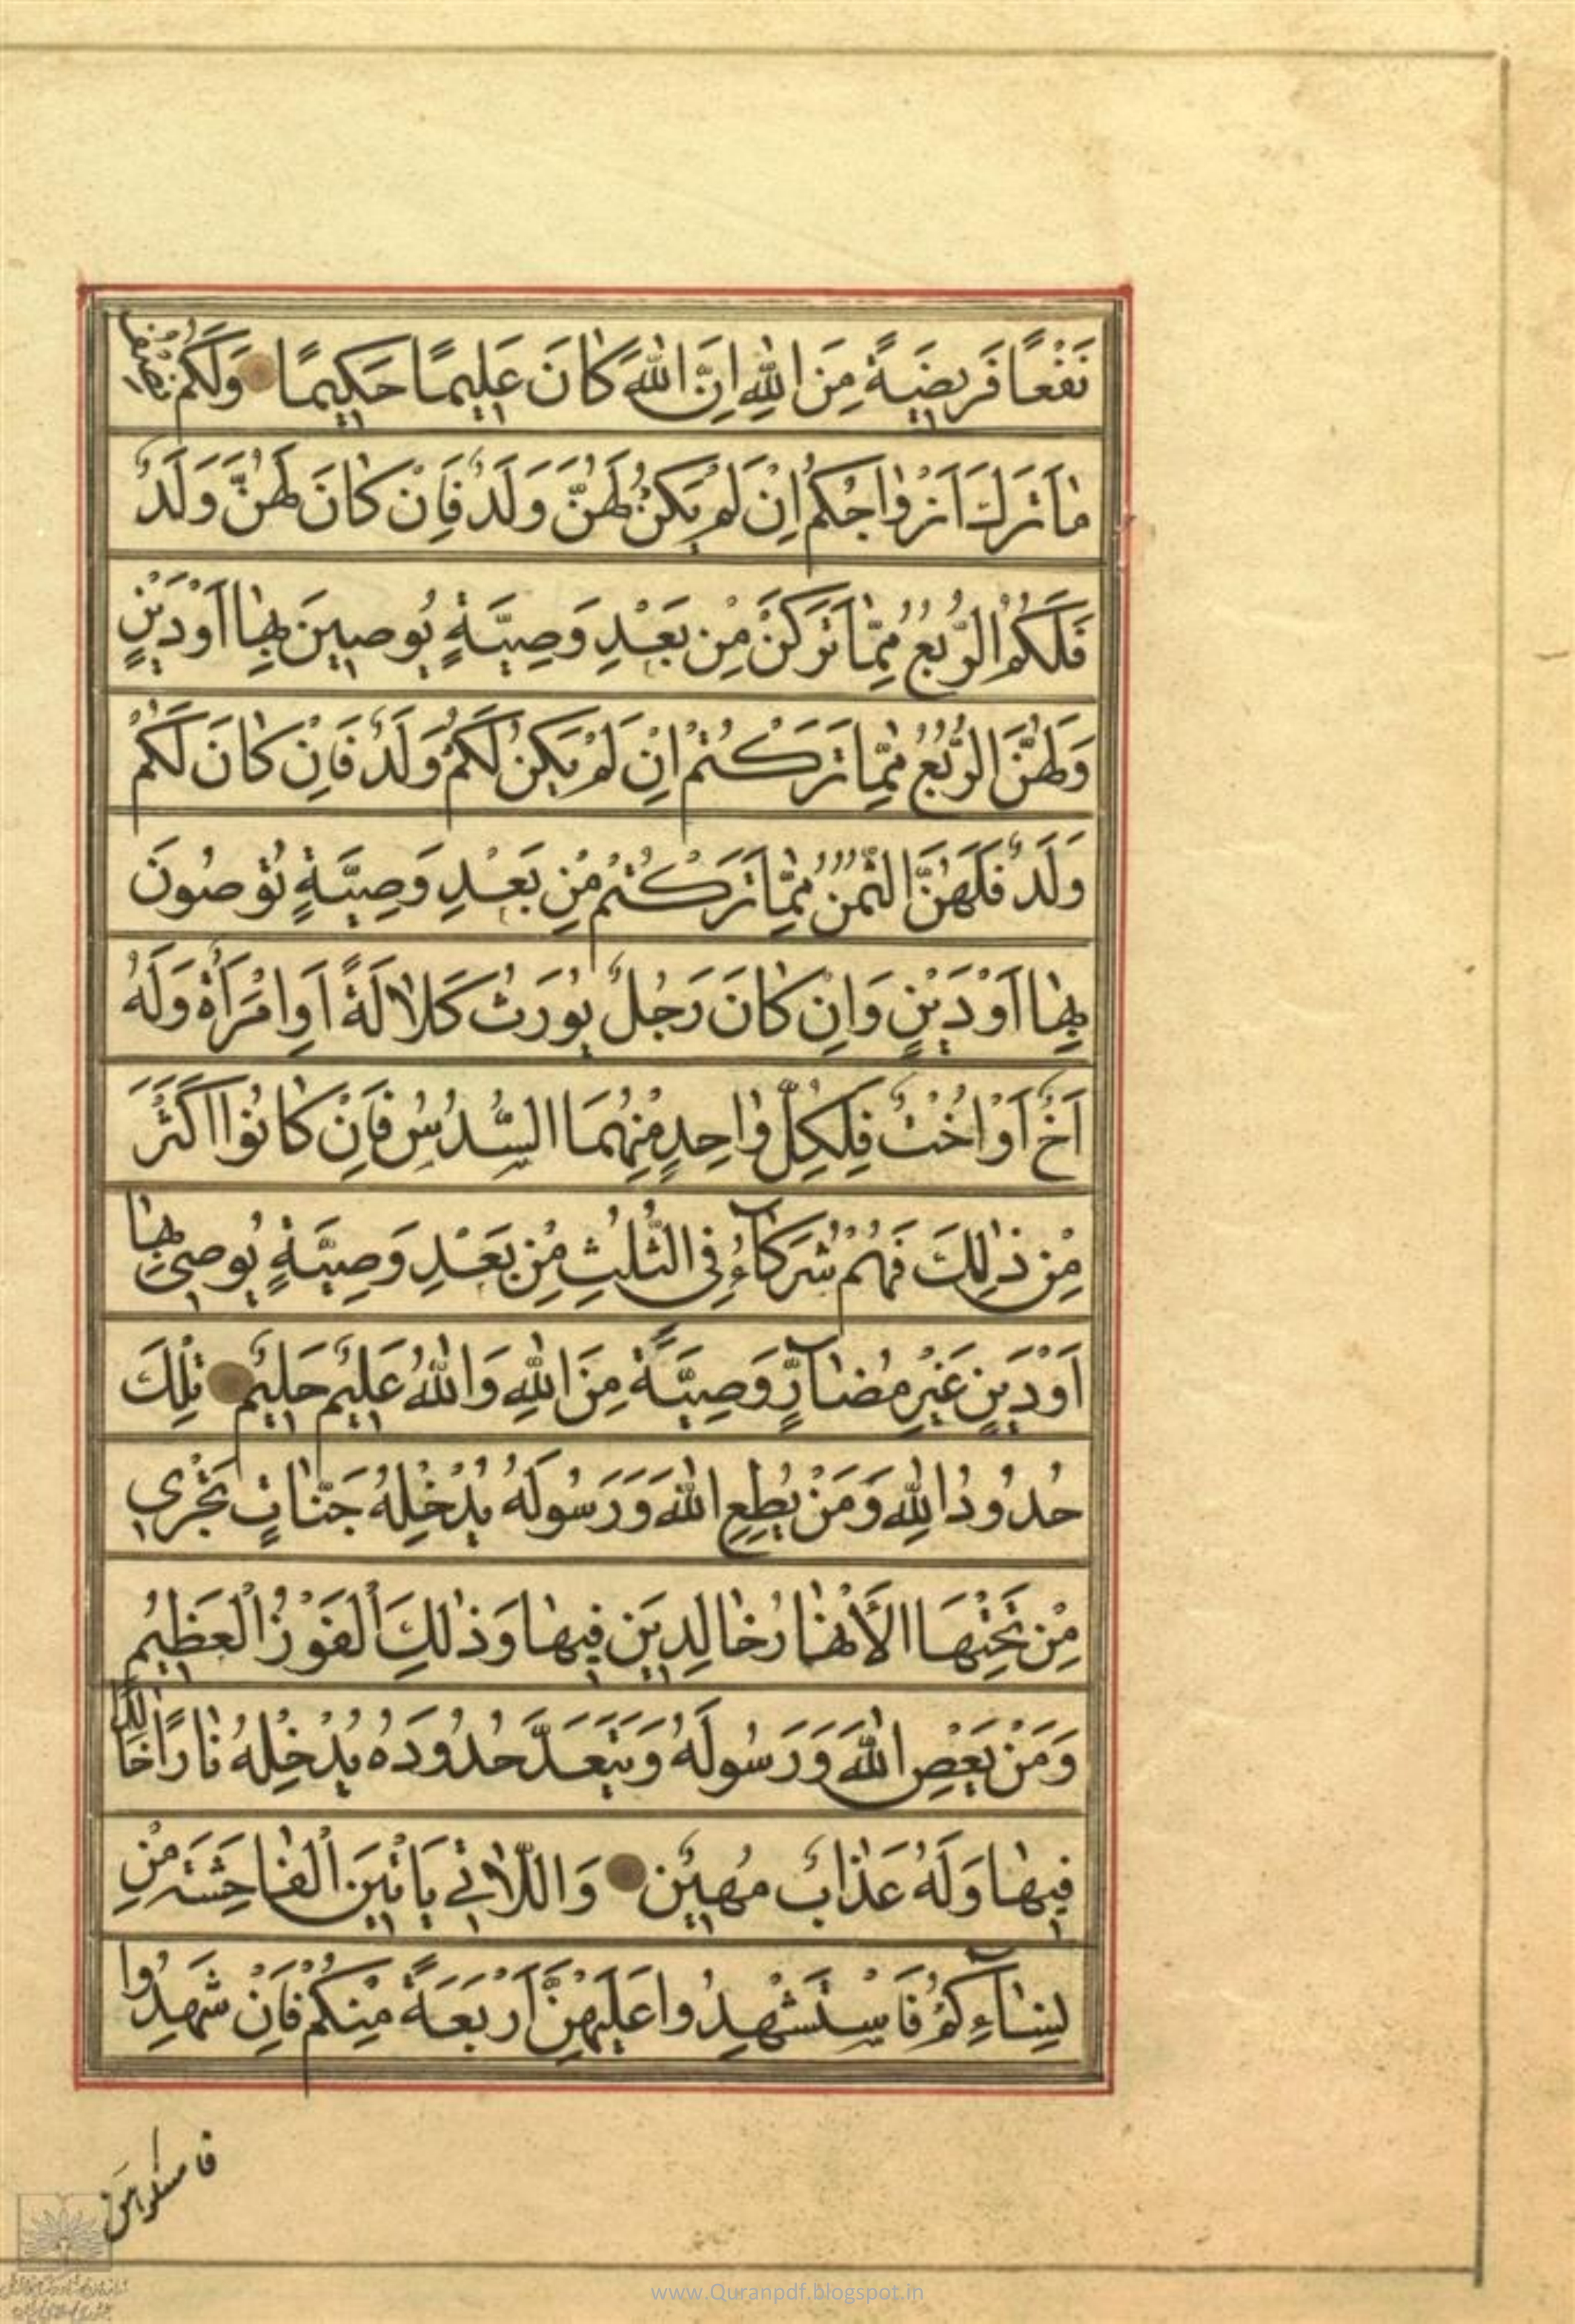 نَفْعًا فَرِيضَةً مِنَ اللّٰهِ اِنَّ اللّٰهَ كٰانَ عَلِيمًا حَكِيمًا وَلَكُمْ نِصْفُ
مٰا تَرَكَ اَزْوٰاجُكُمْ اِنْ لَمْ يَكُنْ لَهُنَّ وَلَدٌ فَاِنْ كٰانَ لَهُنَّ وَلَدٌ
فَلَكُمُ الرُّبُعُ مِمّٰا تَرَكْنَ مِنْ بَعْدِ وَصِيَّةٍ يُوصِينَ بِهٰا اَوْ دَيْنٍ
وَلَهُنَّ الرُّبُعُ مِمّٰا تَرَكْتُمْ اِنْ لَمْ يَكُنْ لَكُمْ وَلَدٌ فَاِنْ كٰانَ لَكُمْ
وَلَدٌ فَلَهُنَّ الثُّمُنُ مِمّٰا تَرَكْتُمْ مِنْ بَعْدِ وَصِيَّةٍ تُوصُونَ
بِهٰا اَوْ دَيْنٍ وَاِنْ كٰانَ رَجُلٌ يُورَثُ كَلٰالَةً اَوِ امْرَأَةٌ وَلَهُ
اَخٌ اَوْ اُخْتٌ فَلِكُلِّ وٰاحِدٍ مِنْهُمَا السُّدُسُ فَاِنْ كٰانُوا اَكْثَرَ
مِنْ ذٰلِكَ فَهُمْ شُرَكٰاۤءُ فِي الثُّلُثِ مِنْ بَعْدِ وَصِيَّةٍ يُوصىٰ بِهٰا
اَوْ دَيْنٍ غَيْرَ مُضٰاۤرٍّ وَصِيَّةً مِنَ اللّٰهِ وَاللّٰهُ عَلِيمٌ حَلِيمٌ تِلْكَ
حُدُودُ اللّٰهِ وَمَنْ يُطِعِ اللّٰهَ وَرَسُولَهُ يُدْخِلْهُ جَنّٰاتٍ تَجْرِي
مِنْ تَحْتِهَا الْأَنْهٰارُ خٰالِدِينَ فِيهٰا وَذٰلِكَ الْفَوْزُ الْعَظِيمُ
وَمَنْ يَعْصِ اللّٰهَ وَرَسُولَهُ وَيَتَعَدَّ حُدُودَهُ يُدْخِلْهُ نٰارًا خٰالِدًا
فِيهٰا وَلَهُ عَذٰابٌ مُهِينٌ وَاللّٰاتِي يَأْتِينَ الْفٰاحِشَةَ مِنْ
نِسٰاۤءِكُمْ فَاسْتَشْهِدُوا عَلَيْهِنَّ اَرْبَعَةً مِنْكُمْ فَاِنْ شَهِدُوا
فامسكوهن
www.Quranpdf.blogspot.in